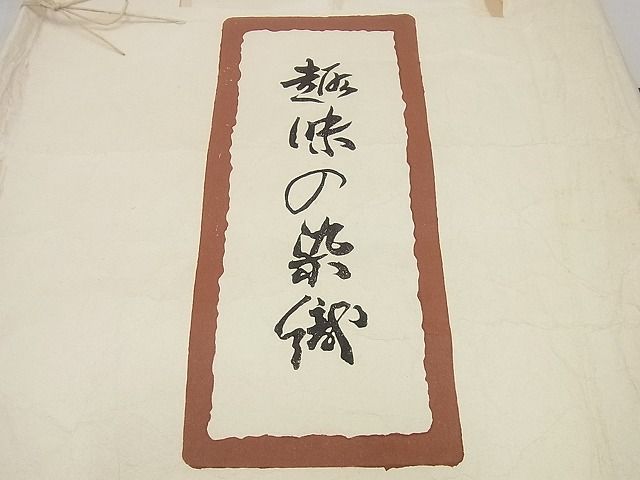 趣味の染織